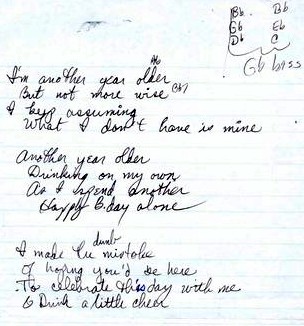 Bb Bb
Gb Eb
Db C
Gb bass
Ab
I'm another year older
But not more wise
I keep assuming
What I don't have is mine
Another year older
Drinking on my own
As I spend another
Happy B.day alone
dumb
I made the mistake
Of hoping you'd be here
To celebrate this day with me
& Drink a little cheer